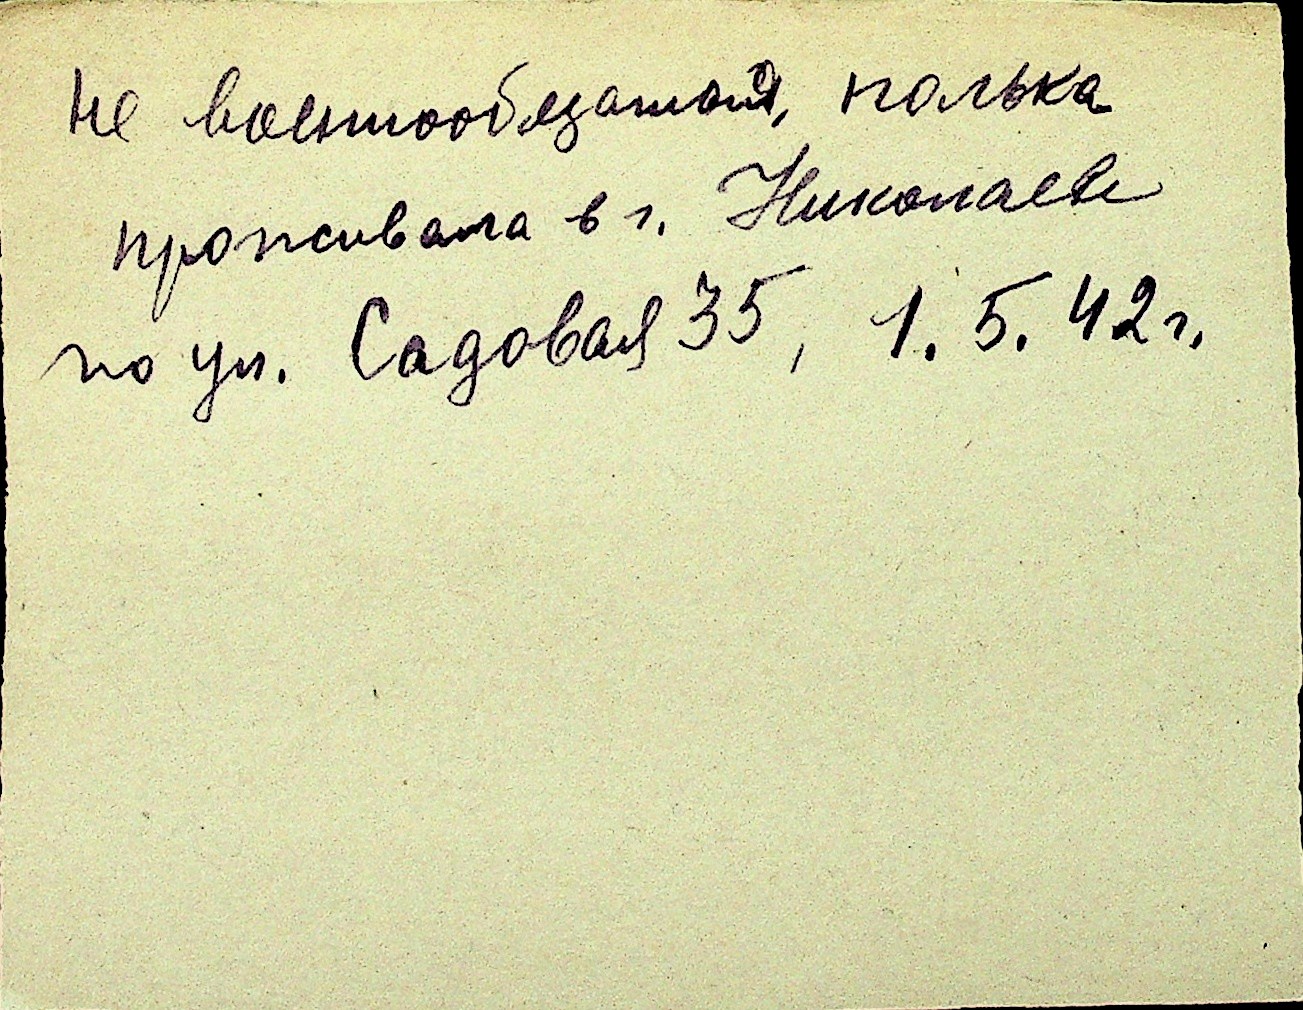 Не военнообязаная, полька
проживала в г. Николаеве
по ул. Садовая 35, 1.5.42 г.